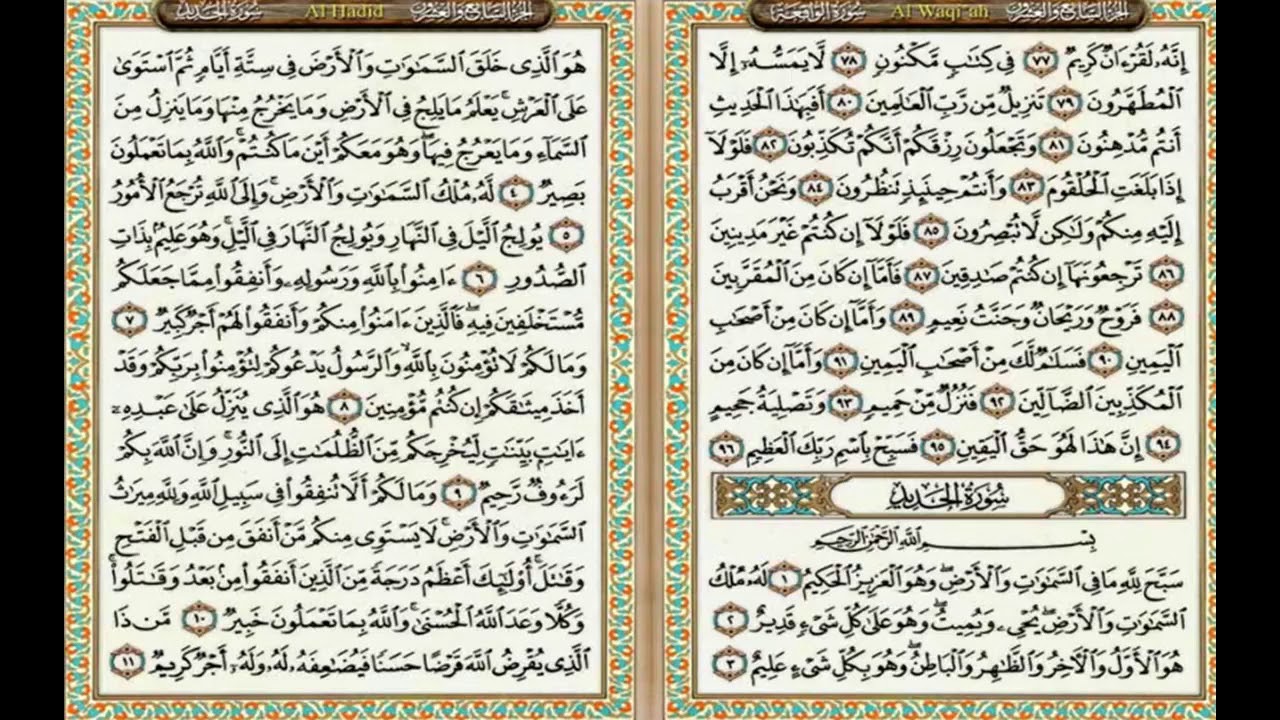 الجزء السابع والعشرون Al Waqi-ah سورة الواقعة
إِنَّهُۥ لَقُرْءَانٌ كَرِيمٌ ٧٧ فِى كِتَٰبٍ مَّكْنُونٍ ٧٨ لَّا يَمَسُّهُۥٓ إِلَّا
ٱلْمُطَهَّرُونَ ٧٩ تَنزِيلٌ مِّن رَّبِّ ٱلْعَٰلَمِينَ ٨٠ أَفَبِهَٰذَا ٱلْحَدِيثِ
أَنتُم مُّدْهِنُونَ ٨١ وَتَجْعَلُونَ رِزْقَكُمْ أَنَّكُمْ تُكَذِّبُونَ ٨٢ فَلَوْلَآ
إِذَا بَلَغَتِ ٱلْحُلْقُومَ ٨٣ وَأَنتُمْ حِينَئِذٍ تَنظُرُونَ ٨٤ وَنَحْنُ أَقْرَبُ
إِلَيْهِ مِنكُمْ وَلَٰكِن لَّا تُبْصِرُونَ ٨٥ فَلَوْلَآ إِن كُنتُمْ غَيْرَ مَدِينِينَ
٨٦ تَرْجِعُونَهَآ إِن كُنتُمْ صَٰدِقِينَ ٨٧ فَأَمَّآ إِن كَانَ مِنَ ٱلْمُقَرَّبِينَ
٨٨ فَرَوْحٌ وَرَيْحَانٌ وَجَنَّتُ نَعِيمٍ ٨٩ وَأَمَّآ إِن كَانَ مِنْ أَصْحَٰبِ
ٱلْيَمِينِ ٩٠ فَسَلَٰمٌ لَّكَ مِنْ أَصْحَٰبِ ٱلْيَمِينِ ٩١ وَأَمَّآ إِن كَانَ مِنَ
ٱلْمُكَذِّبِينَ ٱلضَّآلِّينَ ٩٢ فَنُزُلٌ مِّنْ حَمِيمٍ ٩٣ وَتَصْلِيَةُ جَحِيمٍ
٩٤ إِنَّ هَٰذَا لَهُوَ حَقُّ ٱلْيَقِينِ ٩٥ فَسَبِّحْ بِٱسْمِ رَبِّكَ ٱلْعَظِيمِ ٩٦
سُورَةُ الحَدِيدِ
بِسْمِ ٱللَّهِ ٱلرَّحْمَٰنِ ٱلرَّحِيمِ
سَبَّحَ لِلَّهِ مَا فِى ٱلسَّمَٰوَٰتِ وَٱلْأَرْضِ ۖ وَهُوَ ٱلْعَزِيزُ ٱلْحَكِيمُ ١ لَهُۥ مُلْكُ
ٱلسَّمَٰوَٰتِ وَٱلْأَرْضِ ۖ يُحْىِۦ وَيُمِيتُ ۖ وَهُوَ عَلَىٰ كُلِّ شَىْءٍ قَدِيرٌ ٢
هُوَ ٱلْأَوَّلُ وَٱلْءَاخِرُ وَٱلظَّٰهِرُ وَٱلْبَاطِنُ ۖ وَهُوَ بِكُلِّ شَىْءٍ عَلِيمٌ ٣
الجزء السابع والعشرون Al Hadid سورة الحديد
هُوَ ٱلَّذِى خَلَقَ ٱلسَّمَٰوَٰتِ وَٱلْأَرْضَ فِى سِتَّةِ أَيَّامٍ ثُمَّ ٱسْتَوَىٰ
عَلَى ٱلْعَرْشِ ۚ يَعْلَمُ مَا يَلِجُ فِى ٱلْأَرْضِ وَمَا يَخْرُجُ مِنْهَا وَمَا يَنزِلُ مِنَ
ٱلسَّمَآءِ وَمَا يَعْرُجُ فِيهَا ۖ وَهُوَ مَعَكُمْ أَيْنَ مَا كُنتُمْ ۚ وَٱللَّهُ بِمَا تَعْمَلُونَ
بَصِيرٌ ٤ لَّهُۥ مُلْكُ ٱلسَّمَٰوَٰتِ وَٱلْأَرْضِ ۚ وَإِلَى ٱللَّهِ تُرْجَعُ ٱلْأُمُورُ
٥ يُولِجُ ٱلَّيْلَ فِى ٱلنَّهَارِ وَيُولِجُ ٱلنَّهَارَ فِى ٱلَّيْلِ ۚ وَهُوَ عَلِيمٌۢ بِذَاتِ
ٱلصُّدُورِ ٦ ءَامِنُوا۟ بِٱللَّهِ وَرَسُولِهِۦ وَأَنفِقُوا۟ مِمَّا جَعَلَكُم
مُّسْتَخْلَفِينَ فِيهِ ۖ فَٱلَّذِينَ ءَامَنُوا۟ مِنكُمْ وَأَنفَقُوا۟ لَهُمْ أَجْرٌ كَبِيرٌ ٧
وَمَا لَكُمْ لَا تُؤْمِنُونَ بِٱللَّهِ ۙ وَٱلرَّسُولُ يَدْعُوكُمْ لِتُؤْمِنُوا۟ بِرَبِّكُمْ وَقَدْ
أَخَذَ مِيثَٰقَكُمْ إِن كُنتُم مُّؤْمِنِينَ ٨ هُوَ ٱلَّذِى يُنَزِّلُ عَلَىٰ عَبْدِهِۦٓ
ءَايَٰتٍۭ بَيِّنَٰتٍ لِّيُخْرِجَكُم مِّنَ ٱلظُّلُمَٰتِ إِلَى ٱلنُّورِ ۚ وَإِنَّ ٱللَّهَ بِكُمْ
لَرَءُوفٌ رَّحِيمٌ ٩ وَمَا لَكُمْ أَلَّا تُنفِقُوا۟ فِى سَبِيلِ ٱللَّهِ وَلِلَّهِ مِيرَٰثُ
ٱلسَّمَٰوَٰتِ وَٱلْأَرْضِ ۚ لَا يَسْتَوِى مِنكُم مَّنْ أَنفَقَ مِن قَبْلِ ٱلْفَتْحِ
وَقَٰتَلَ ۚ أُو۟لَٰٓئِكَ أَعْظَمُ دَرَجَةً مِّنَ ٱلَّذِينَ أَنفَقُوا۟ مِنۢ بَعْدُ وَقَٰتَلُوا۟ ۚ
وَكُلًّا وَعَدَ ٱللَّهُ ٱلْحُسْنَىٰ ۚ وَٱللَّهُ بِمَا تَعْمَلُونَ خَبِيرٌ ١٠ مَّن ذَا
ٱلَّذِى يُقْرِضُ ٱللَّهَ قَرْضًا حَسَنًا فَيُضَٰعِفَهُۥ لَهُۥ وَلَهُۥٓ أَجْرٌ كَرِيمٌ ١١